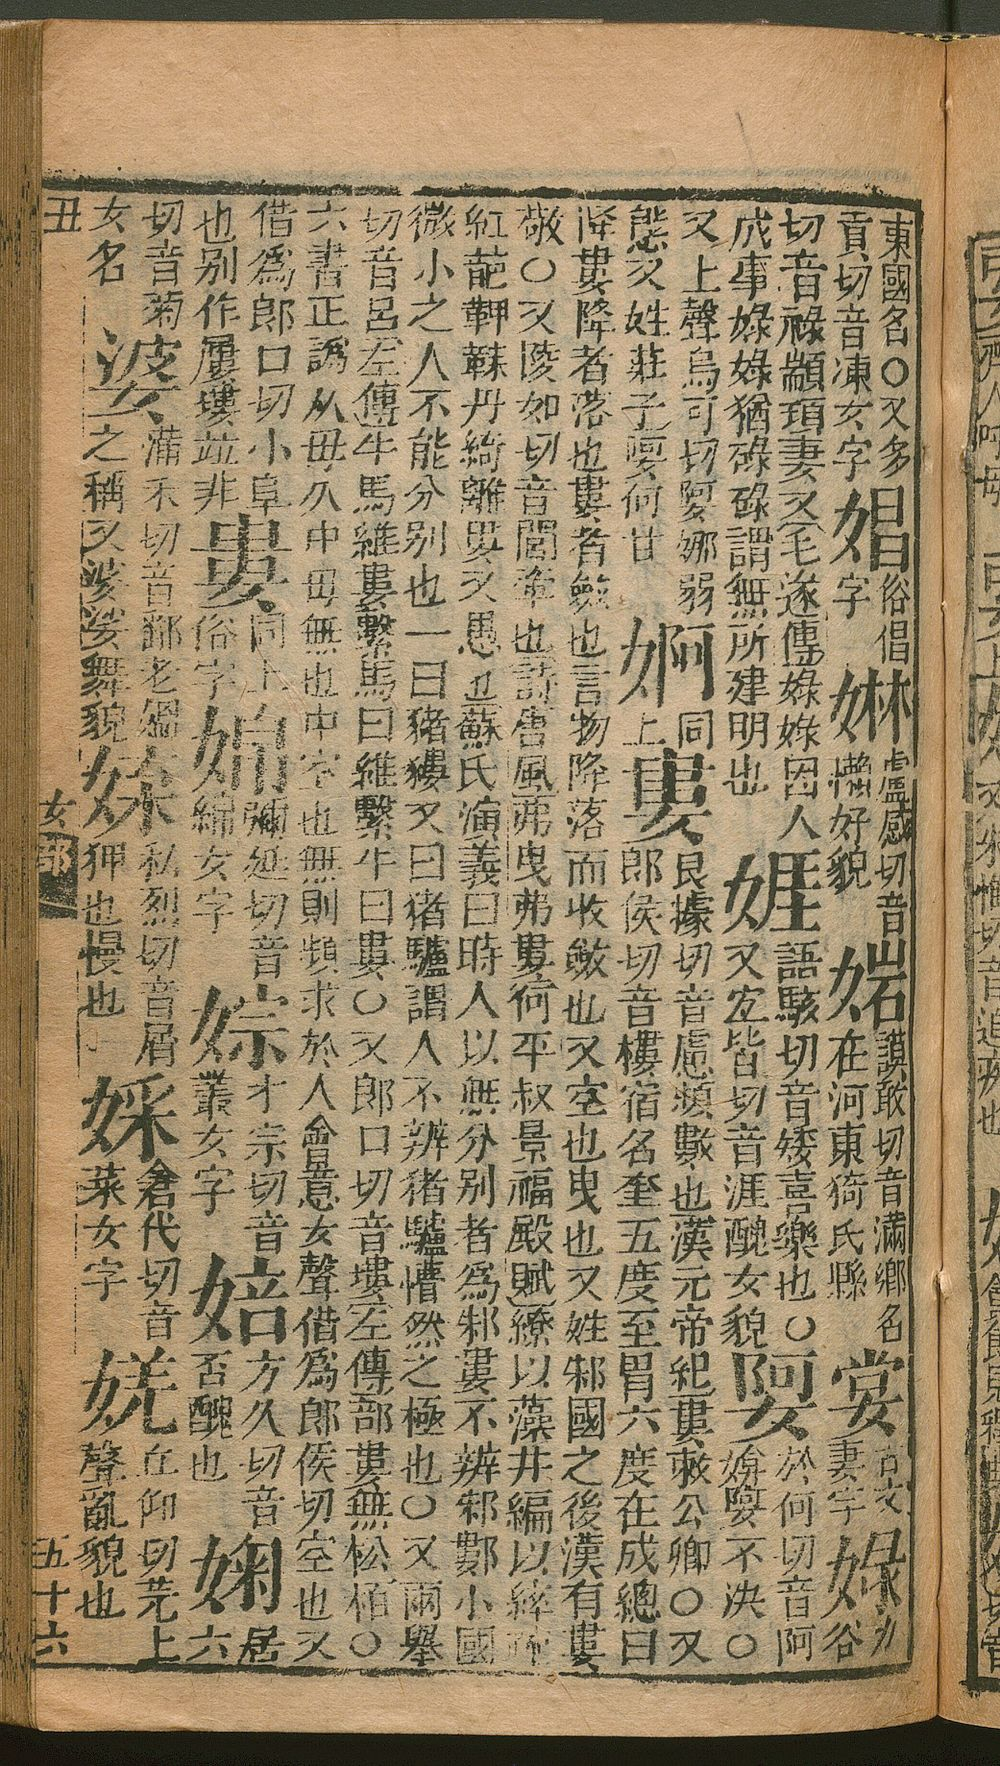 東國名○又多 娼 俗倡 㛦 盧感切音 㛧 謨敢切音滿鄉名 㝧 古文 婇
貢切音凍女字 字 懶好貌 在河東猗氏縣 妻字 谷
切音祿顓頊妻又毛遂傳婇婇因人 娾 語駭切音矮喜樂也○ 娿 於何切音阿
成事婇婇猶碌碌謂無所建明也 又宜皆切音涯醜女貌 媕娿不決○
又上聲烏可切娿娜弱 婀 同 婁 良據切音慮頻數也漢元帝紀婁敕公卿○又
態又姓莊子婀何甘 上 郎侯切音樓宿名奎五度至胃六度在成總曰
降婁降者落也婁者斂也言物降落而收斂也又空也曳也又姓邾國之後漢有婁
敬○又陵如切音閭牽也詩唐風弗曳弗婁何平叔景福殿賦繚以藻井編以綷疏
紅葩䩞鞢丹綺離婁又愚也蘇氏演義曰時人以無分別者為邾婁不辨邾鄴小國
微小之人不能分別也一曰豬貗又曰豬驢謂人不辨豬驢懵然之極也○又兩舉
切音呂左傳牛馬維婁繫馬曰維繫牛曰婁○又郎口切音塿左傳部婁無松栢○
六書正譌从毋久中毋無也中空也無則頻求於人會意女聲借為郎侯切空也又
借為郎口切小阜 婁 同上 婂 彌延切音 婃 才宗切音 婄 方久切音 婅 居
也別作屢塿竝非 俗字 綿女字 叢女字 否醜也 六
切音菊 婆 蒲禾切音鄱老媼 㛖 私烈切音屑 婇 倉代切音 㛿 丘仰切羌上
女名 之稱又娑婆舞貌 狎也慢也 菜女字 聲亂貌也
丑 女部 五十六